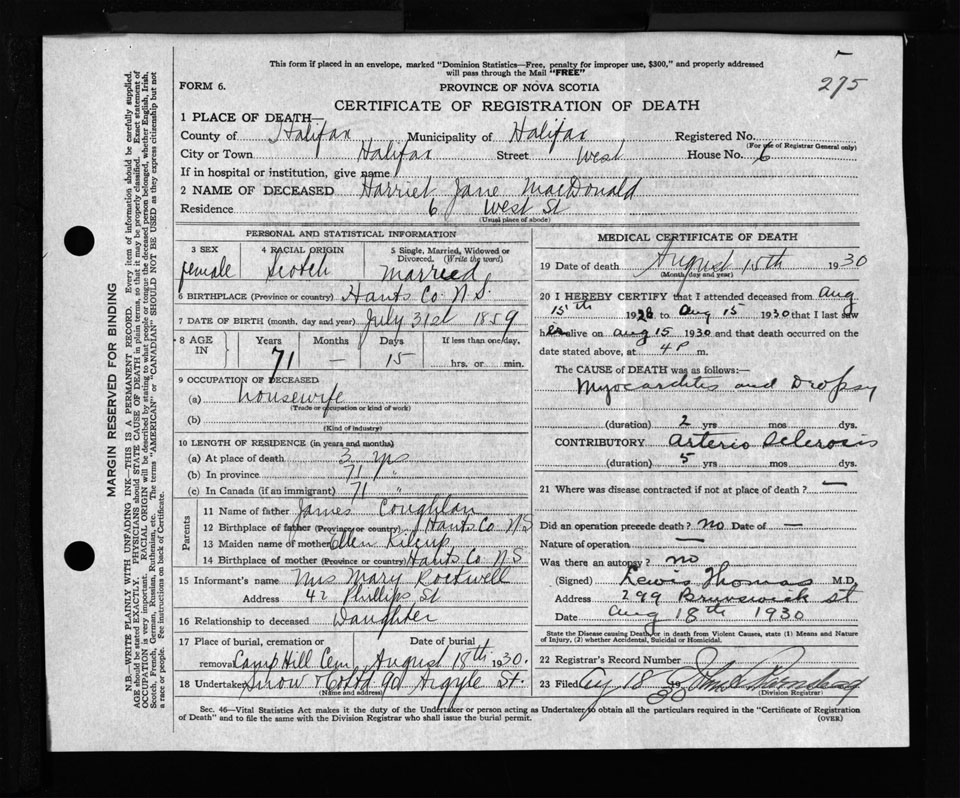 275
This form if placed in an envelope, marked "Dominion Statistics—Free, penalty for improper use, $300," and properly addressed
will pass through the Mail "FREE"
FORM 6.
PROVINCE OF NOVA SCOTIA
CERTIFICATE OF REGISTRATION OF DEATH
1 PLACE OF DEATH—
County of Halifax Municipality of Halifax Registered No.
(For use of Registrar General only)
City or Town Halifax Street West House No. 6
If in hospital or institution, give name
2 NAME OF DECEASED Harriet Jane MacDonald
Residence 6 West St
(Usual place of abode)
PERSONAL AND STATISTICAL INFORMATION
3 SEX 4 RACIAL ORIGIN 5 Single, Married, Widowed or
Divorced. (Write the word)
female Scotch married
6 BIRTHPLACE (Province or country) Hants Co. N.S.
7 DATE OF BIRTH (month, day and year) July 31st 1859
8 AGE IN Years Months Days If less than one day,
71 — 15 hrs. or min.
9 OCCUPATION OF DECEASED
(a) housewife
(Trade or occupation or kind of work)
(b)
(Kind of industry)
10 LENGTH OF RESIDENCE (in years and months)
(a) At place of death 3 yrs
(b) In province 71 "
(c) In Canada (if an immigrant) 71 "
Parents
11 Name of father James Coughlan
12 Birthplace of father (Province or country) Hants Co N.S
13 Maiden name of mother Ellen Kilcup
14 Birthplace of mother (Province or country) Hants Co N.S
15 Informant's name Mrs Mary Rockwell
Address 42 Phillips St
16 Relationship to deceased Daughter
17 Place of burial, cremation or Date of burial
removal Camp Hill Cem August 18th 1930.
18 Undertaker Snow & Co Ltd 90 Argyle St.
(Name and address)
MEDICAL CERTIFICATE OF DEATH
19 Date of death August 15th 1930
(Month, day and year)
20 I HEREBY CERTIFY that I attended deceased from Aug
15th 1926 to Aug 15 1930 that I last saw
her alive on aug 15 1930 and that death occurred on the
date stated above, at 4 P m.
The CAUSE of DEATH was as follows:—
Myocarditis and Dropsy
(duration) 2 yrs mos dys.
CONTRIBUTORY Arterio Sclerosis
(duration) 5 yrs mos. dys.
21 Where was disease contracted if not at place of death? —
Did an operation precede death? no Date of —
Nature of operation —
Was there an autopsy? no
(Signed) Lewis Thomas M.D.
Address 299 Brunswick St
Date aug 18th 1930
State the Disease causing Death, or in death from Violent Causes, state (1) Means and Nature
of Injury, (2) whether Accidental, Suicidal or Homicidal.
22 Registrar's Record Number
23 Filed Aug 18 1930
(Division Registrar)
Sec. 46—Vital Statistics Act makes it the duty of the Undertaker or person acting as Undertaker to obtain all the particulars required in the "Certificate of Registration
of Death" and to file the same with the Division Registrar who shall issue the burial permit. (OVER)
MARGIN RESERVED FOR BINDING
N.B.—WRITE PLAINLY WITH UNFADING INK—THIS IS A PERMANENT RECORD. Every item of information should be carefully supplied.
AGE should be stated EXACTLY. PHYSICIANS should STATE CAUSE OF DEATH in plain terms, so that it may be properly classified. Exact statement of
OCCUPATION is very important. RACIAL ORIGIN will be described by stating to what people or tongue the deceased person belonged, whether English, Irish,
Scotch, French, German, Russian, Ruthenian, etc. The terms "AMERICAN" or "CANADIAN" SHOULD NOT BE USED as they express citizenship but not
a race or people. See instructions on back of Certificate.